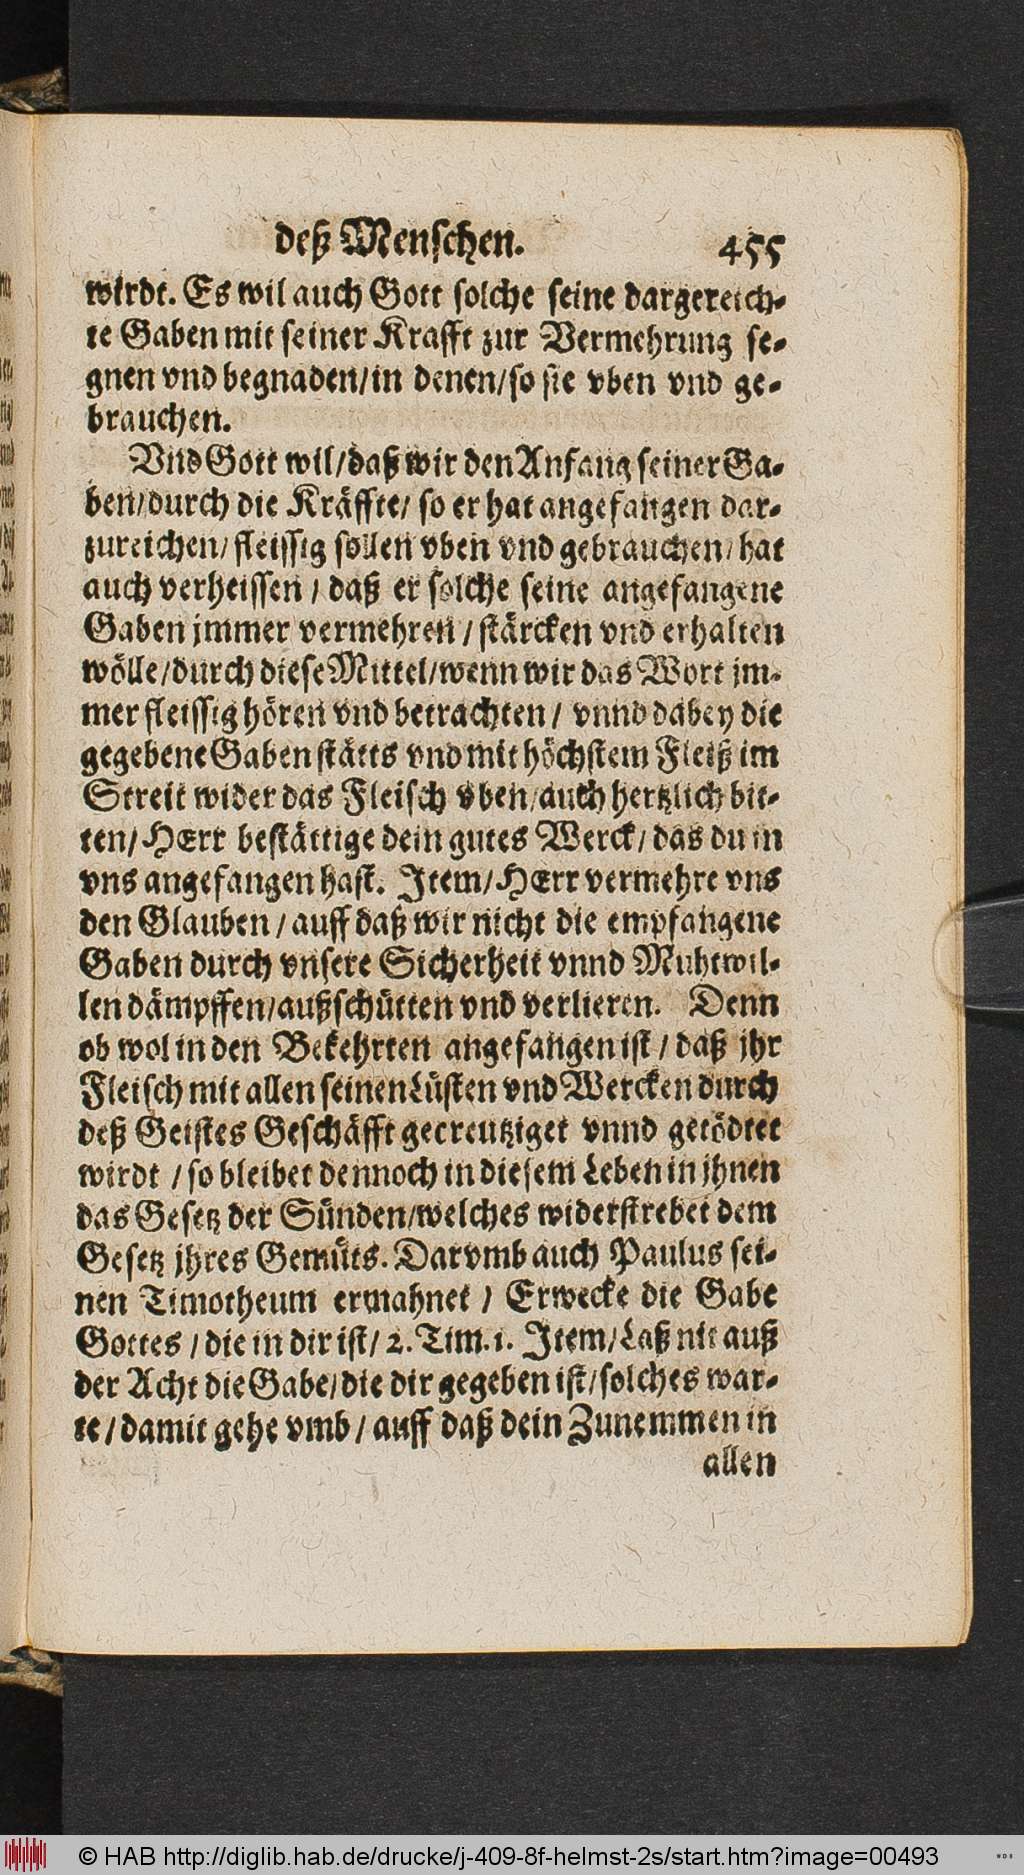 deß Menschen. 455
wirdt. Es wil auch Gott solche seine dargereich-
te Gaben mit seiner Krafft zur Vermehrung se-
gnen vnd begnaden/ in denen/ so sie vben vnd ge-
brauchen.
Vnd Gott wil/ daß wir den Anfang seiner Ga-
ben/ durch die Kräffte/ so er hat angefangen dar-
zureichen/ fleissig sollen vben vnd gebrauchen/ hat
auch verheissen / daß er solche seine angefangene
Gaben jmmer vermehren / stärcken vnd erhalten
wölle / durch diese Mittel/ wenn wir das Wort jm-
mer fleissig hören vnd betrachten / vnnd dabey die
gegebene Gaben stätts vnd mit höchstem Fleiß im
Streit wider das Fleisch vben/ auch hertzlich bit-
ten/ HErr bestättige dein gutes Werck/ das du in
vns angefangen hast. Item/ HErr vermehre vns
den Glauben / auff daß wir nicht die empfangene
Gaben durch vnsere Sicherheit vnnd Muhtwil-
len dämpffen/ außschütten vnd verlieren. Denn
ob wol in den Bekehrten angefangen ist / daß jhr
Fleisch mit allen seinen Lüsten vnd Wercken durch
deß Geistes Geschäfft gecreutziget vnnd getödtet
wirdt / so bleibet dennoch in diesem Leben in jhnen
das Gesetz der Sünden/ welches widerstrebet dem
Gesetz jhres Gemüts. Darvmb auch Paulus sei-
nen Timotheum ermahnet / Erwecke die Gabe
Gottes / die in dir ist/ 2. Tim. 1. Item/ Laß nit auß
der Acht die Gabe/ die dir gegeben ist/ solches war-
te / damit gehe vmb / auff daß dein Zunemmen in
allen
© HAB http://diglib.hab.de/drucke/j-409-8f-helmst-2s/start.htm?image=00493